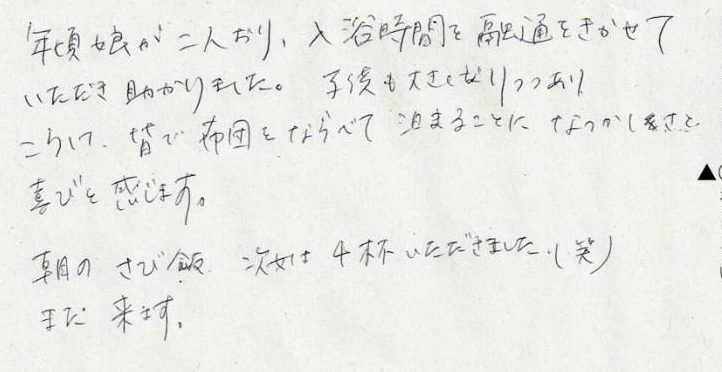 年頃娘が二人おり、入浴時間を融通をきかせて
いただき助かりました。 子供も大きくなりつつあり
こうして、皆で布団をならべて泊まることになつかしさと
喜びを感じます。
朝のさび飯 次女は4杯いただきました.(笑)
また来ます。
▲